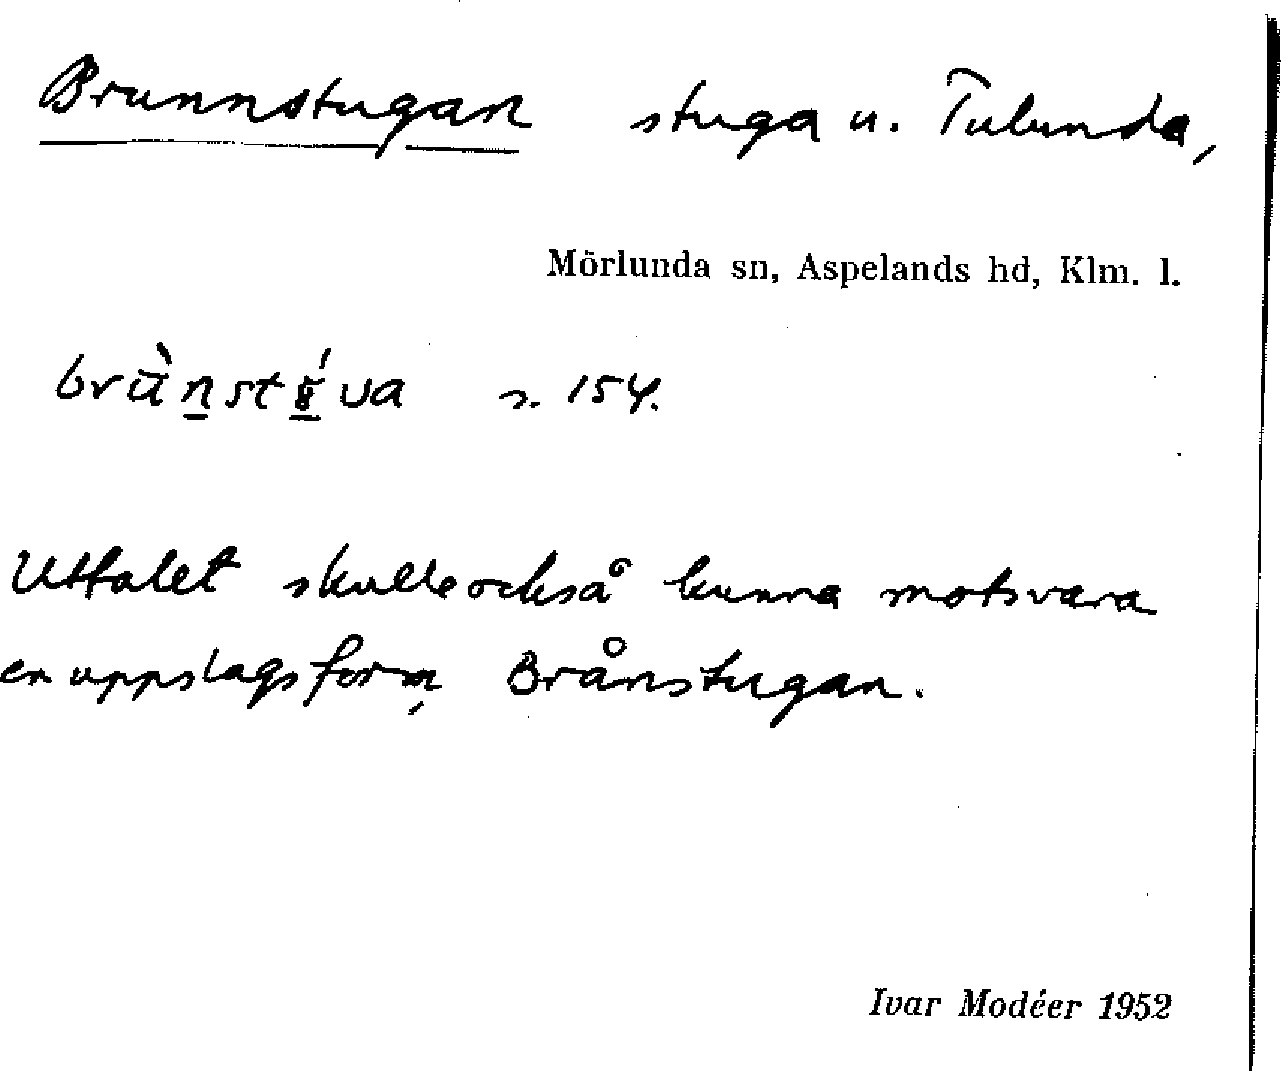 Brunnstugan stuga u. Tulunda,
Mörlunda sn, Aspelands hd, Klm. l.
s. 154.
Uttalet skulle också kunna motsvara
en uppslagsform, Brånstugan.
Ivar Modéer 1952